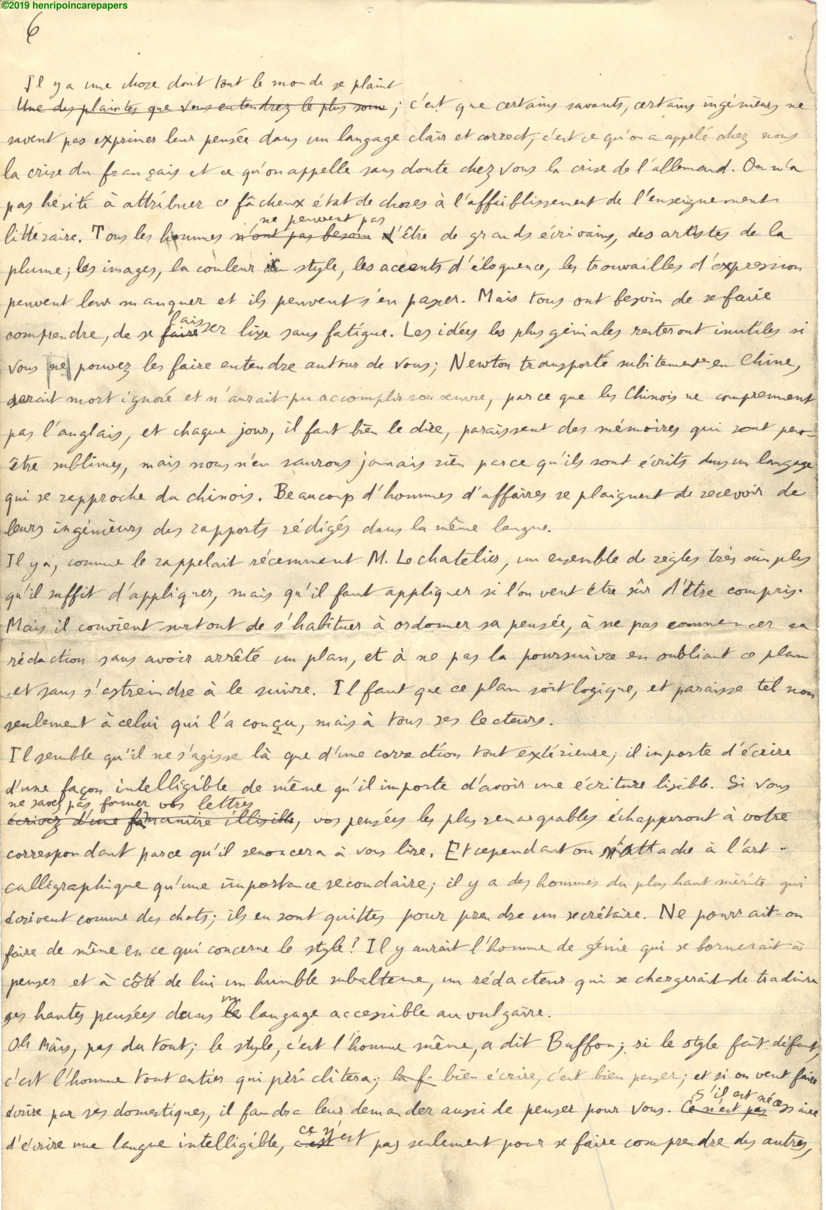 ©2019 henripoincarepapers
6
Il y a une chose dont tout le monde se plaint
Une des plaintes que vous entendrez le plus souv; c'est que certains savants, certains ingénieurs ne
savent pas exprimer leur pensée dans un langage clair et correct, c'est ce qu'on a appelé chez nous
la crise du français et ce qu'on appelle sans doute chez vous la crise de l'allemand. On n'a
pas hésité à attribuer ce fâcheux état de choses à l'affaiblissement de l'enseignement
ne peuvent pas
littéraire. Tous les hommes n'ont pas besoin d'être de grands écrivains, des artistes de la
plume; les images, la couleur style, les accents d'éloquence, les trouvailles d'expression
peuvent leur manquer et ils peuvent s'en passer. Mais tous ont besoin de se faire
laisser
comprendre, de se faire lire sans fatigue. Les idées les plus géniales resteront inutiles si
vous ne pouvez les faire entendre autour de vous; Newton transporté subitement en Chine,
serait mort ignoré et n'aurait pu accomplir son œuvre, parce que les Chinois ne comprennent
pas l'anglais, et chaque jour, il faut bien le dire, paraissent des mémoires qui sont peut-
être sublimes, mais nous n'en saurons jamais rien parce qu'ils sont écrits dans un langage
qui se rapproche du chinois. Beaucoup d'hommes d'affaires se plaignent de recevoir de
leurs ingénieurs des rapports rédigés dans la même langue.
Il y a, comme le rappelait récemment M. Lechatelier, un ensemble de règles très simples
qu'il suffit d'appliquer, mais qu'il faut appliquer si l'on veut être sûr d'être compris.
Mais il convient surtout de s'habituer à ordonner sa pensée, à ne pas commencer sa
rédaction sans avoir arrêté un plan, et à ne pas la poursuivre en oubliant ce plan
et sans s'astreindre à le suivre. Il faut que ce plan soit logique, et paraisse tel non
seulement à celui qui l'a conçu, mais à tous ses lecteurs.
Il semble qu'il ne s'agisse là que d'une correction tout extérieure; il importe d'écrire
d'une façon intelligible de même qu'il importe d'avoir une écriture lisible. Si vous
ne savez pas former vos lettres
écrivez d'une manière illisible, vos pensées les plus remarquables échapperont à votre
correspondant parce qu'il renoncera à vous lire. Et cependant on n'attache à l'art
calligraphique qu'une importance secondaire; il y a des hommes du plus haut mérite qui
écrivent comme des chats; ils en sont quittes pour prendre un secrétaire. Ne pourrait-on
faire de même en ce qui concerne le style? Il y aurait l'homme de génie qui se bornerait à
penser et à côté de lui un humble subalterne, un rédacteur qui se chargerait de traduire
ses hautes pensées dans un le langage accessible au vulgaire.
Oh mais, pas du tout; le style, c'est l'homme même, a dit Buffon; si le style fait défaut,
c'est l'homme tout entier qui périclitera; la f. bien écrire, c'est bien penser; et si on veut faire
s'il est nécessaire
écrire par ses domestiques, il faudra leur demander aussi de penser pour vous. Ce n'est pas
ce n'est
d'écrire une langue intelligible, c'est pas seulement pour se faire comprendre des autres,